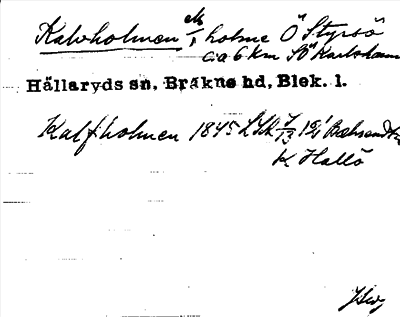 Kalvholmen ek/1 holme Ö Styrsö
ca 6 km SÖ Karlshamn
Hällaryds sn, Bräkne hd, Blek. l.
Kalfholmen 1845 LSk
K Hallö